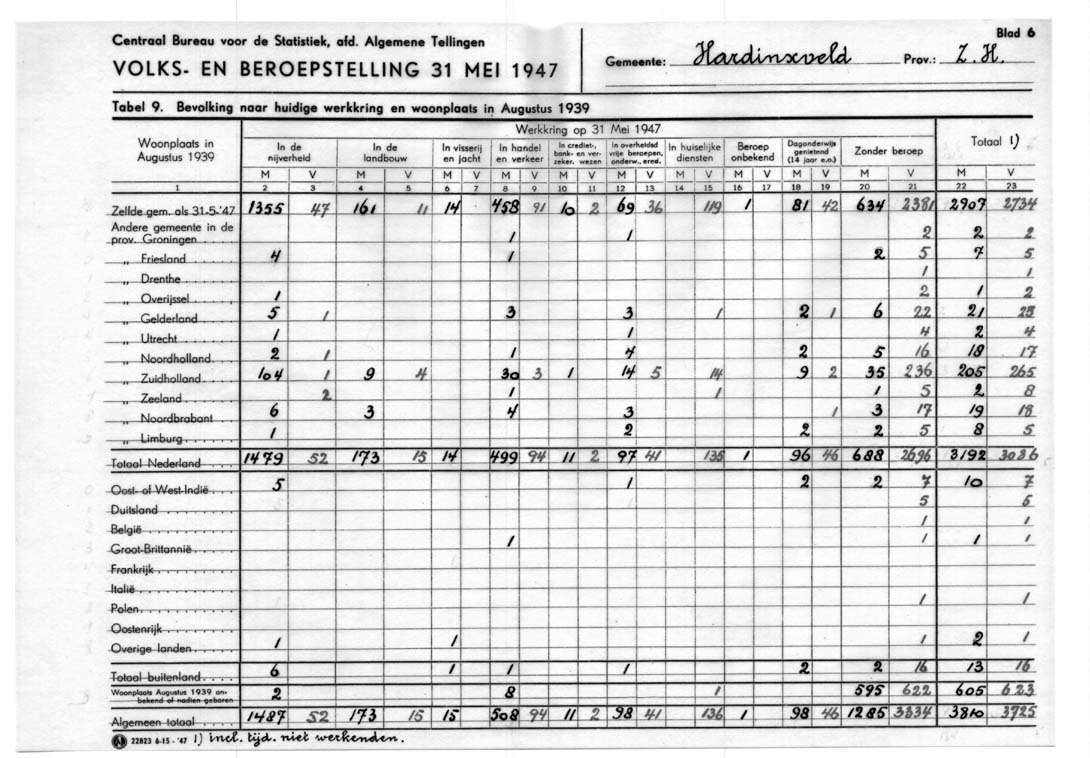 Centraal Bureau voor de Statistiek, afd. Algemene Tellingen
VOLKS- EN BEROEPSTELLING 31 MEI 1947
Gemeente: Hardinxveld Prov.: Z.H.
Blad 6
Tabel 9. Bevolking naar huidige werkkring en woonplaats in Augustus 1939
Woonplaats in Augustus 1939
Werkkring op 31 Mei 1947
Totaal 1)
In de nijverheid
In de landbouw
In visserij en jacht
In handel en verkeer
In crediet-, bank- en verzeker. wezen
In overheidsd vrije beroepen, onderw., ered.
In huiselijke diensten
Beroep onbekend
Dagonderwijs genietend (14 jaar e.o.)
Zonder beroep
M V M V M V M V M V M V M V M V M V M V M V
1 2 3 4 5 6 7 8 9 10 11 12 13 14 15 16 17 18 19 20 21 22 23
Zelfde gem. als 31-5-'47 1355 47 161 11 14 458 91 10 2 69 36 119 1 81 42 634 2381 2907 2734
Andere gemeente in de
prov. Groningen 1 1 2 2 2
„ Friesland 4 1 2 5 7 5
„ Drenthe 1 1
„ Overijssel 1 2 1 2
„ Gelderland 5 1 3 3 1 2 1 6 22 21 25
„ Utrecht 1 1 4 2 4
„ Noordholland 2 1 1 4 2 5 16 18 17
„ Zuidholland 104 1 9 4 30 3 1 14 5 14 9 2 35 236 205 265
„ Zeeland 2 1 1 1 5 2 8
„ Noordbrabant 6 3 4 3 1 3 17 19 18
„ Limburg 1 2 2 2 5 8 5
Totaal Nederland 1479 52 173 15 14 499 94 11 2 97 41 135 1 96 46 688 2696 3192 3086
Oost- of West-Indië 5 1 2 2 7 10 7
Duitsland 5 5
België 1 1
Groot-Brittannië 1 1 1 1
Frankrijk
Italië
Polen 1 1
Oostenrijk
Overige landen 1 1 1 2 1
Totaal buitenland 6 1 1 1 2 2 16 13 16
Woonplaats Augustus 1939 onbekend of nadien geboren 2 8 1 595 622 605 623
Algemeen totaal 1487 52 173 15 15 508 94 11 2 98 41 136 1 98 46 1285 3334 3810 3725
22823 6-15 - '47 1) incl. tijd. niet werkenden.